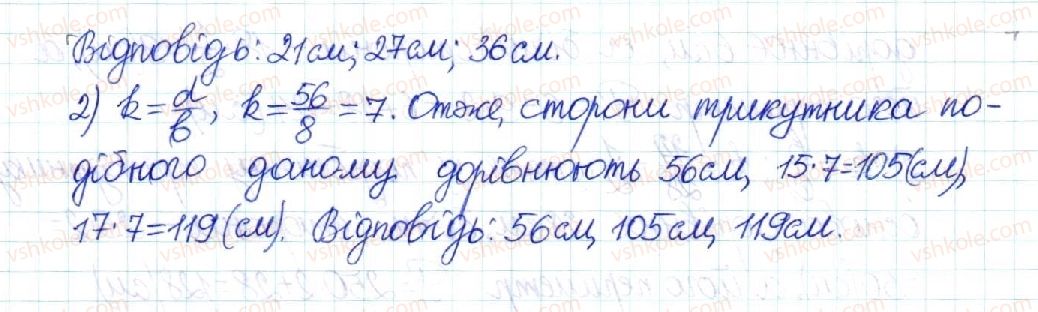 Відповідь: 21см; 27см; 36см.
2) k = d/b, k = 56/8 = 7. Отже, сторони трикутника по-
дібного даному дорівнюють 56см, 15·7=105(см),
17·7=119(см). Відповідь: 56см, 105см, 119см.